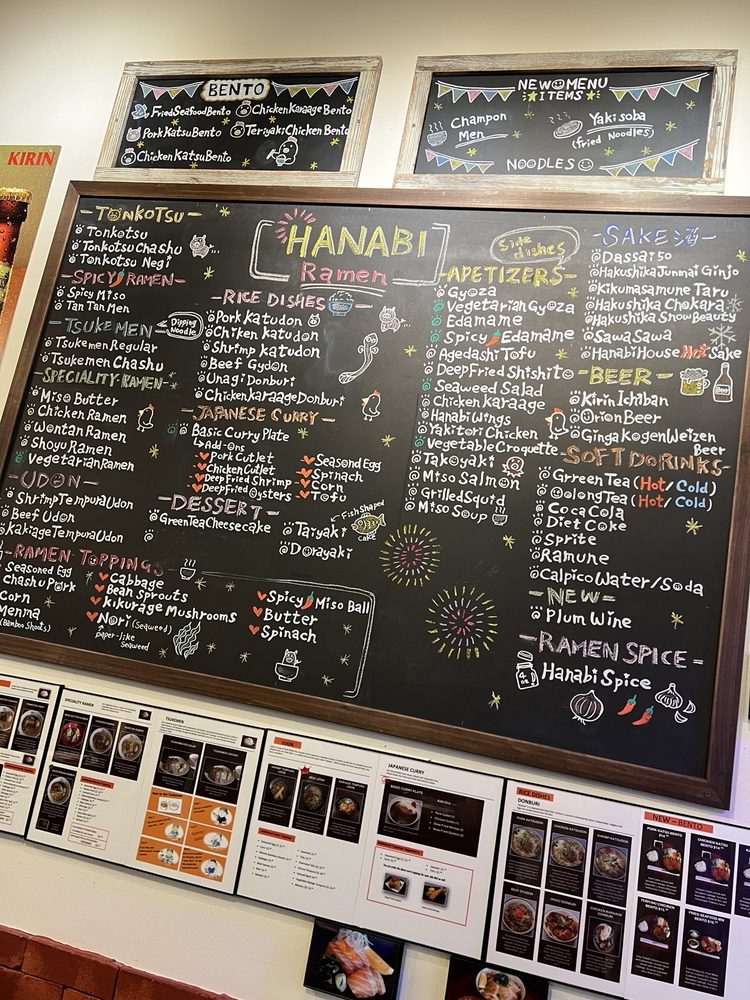 KIRIN
BENTO
Fried Seafood Bento
Chicken Karaage Bento
Pork Katsu Bento
Teriyaki Chicken Bento
Chicken Katsu Bento
NEW MENU
ITEMS
Champon
Men
Yakisoba
(fried Noodles)
NOODLES
HANABI
Ramen
-TONKOTSU-
Tonkotsu
Tonkotsu Chashu
Tonkotsu Negi
-SPICY RAMEN-
Spicy Miso
Tan Tan Men
-TSUKEMEN-
Dipping
Noodle
Tsukemen Regular
Tsukemen Chashu
-SPECIALITY RAMEN-
Miso Butter
Chicken Ramen
Wontan Ramen
Shoyu Ramen
Vegetarian Ramen
-UDON-
Shrimp Tempura Udon
Beef Udon
Kakiage Tempura Udon
-RAMEN TOPPINGS-
Seasoned Egg
Chashu Pork
Corn
Menma
(Bamboo Shoots)
Cabbage
Bean Sprouts
Kikurage Mushrooms
Nori (Seaweed)
paper-like
seaweed
Spicy Miso Ball
Butter
Spinach
-RICE DISHES-
Pork Katudon
Chiken katudon
Shrimp katudon
Beef Gydon
Unagi Donburi
Chicken karaage Donburi
-JAPANESE CURRY-
Basic Curry Plate
Add-Ons
Pork Cutlet
Chicken Cutlet
Deep Fried Shrimp
Deep Fried Oysters
Seasond Egg
Spinach
Corn
Tofu
-DESSERT-
Green Tea Cheesecake
Taiyaki
Fish Shaped
cake
Dorayaki
Side
dishes
-APETIZERS-
Gyoza
Vegetarian Gyoza
Edamame
Spicy Edamame
Agedashi Tofu
Deep Fried Shishito
Seaweed Salad
Chicken karaage
Hanabi Wings
Yakitori Chicken
Vegetable Croquette
Takoyaki
Miso Salmon
Grilled Squid
Miso Soup
-SAKE 酒-
Dassai 50
Hakushika Junmai Ginjo
Kikumasamune Taru
Hakushika Chokara
Hakushika Snow Beauty
Sawa Sawa
Hanabi House Hot Sake
-BEER-
Kirin Ichiban
Orion Beer
Ginga Kogen Weizen
Beer
-SOFT DORINKS-
Grreen Tea (Hot/Cold)
Oolong Tea (Hot/Cold)
Coca Cola
Diet Coke
Sprite
Ramune
Calpico Water/Soda
-NEW-
Plum Wine
-RAMEN SPICE-
4
oz
Hanabi Spice
SPECIALITY RAMEN
TSUKEMEN
UDON
JAPANESE CURRY
BASIC CURRY PLATE
RICE DISHES
DONBURI
NEW - BENTO